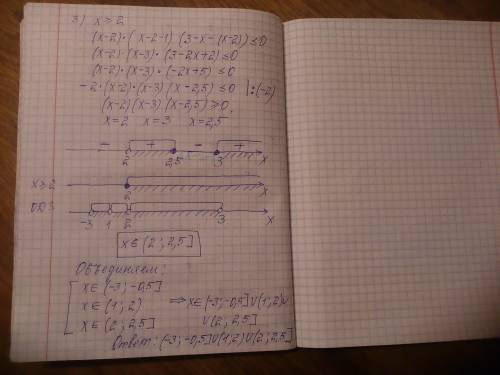 3) x ≥ 2
(x-2)·(x-2-1)(3-x-(x-2)) ≤ 0
(x-2)·(x-3)·(3-2x+2) ≤ 0
(x-2)·(x-3)·(-2x+5) ≤ 0
-2·(x-2)·(x-3)(x-2,5) ≤ 0 |:(-2)
(x-2)(x-3)(x-2,5) ≥ 0
x=2 x=3 x=2,5
- + - +
2 2,5 3 x
x ≥ 2 2 x
ОДЗ -3 1 2 3 x
x∈(2; 2,5]
Объединяем:
[ x∈(-3; -0,5]
x∈(1; 2) ⇒ x∈(-3; -0,5]∪(1; 2)∪
x∈(2; 2,5] ∪(2; 2,5]
Ответ: (-3; -0,5]∪(1; 2)∪(2; 2,5]